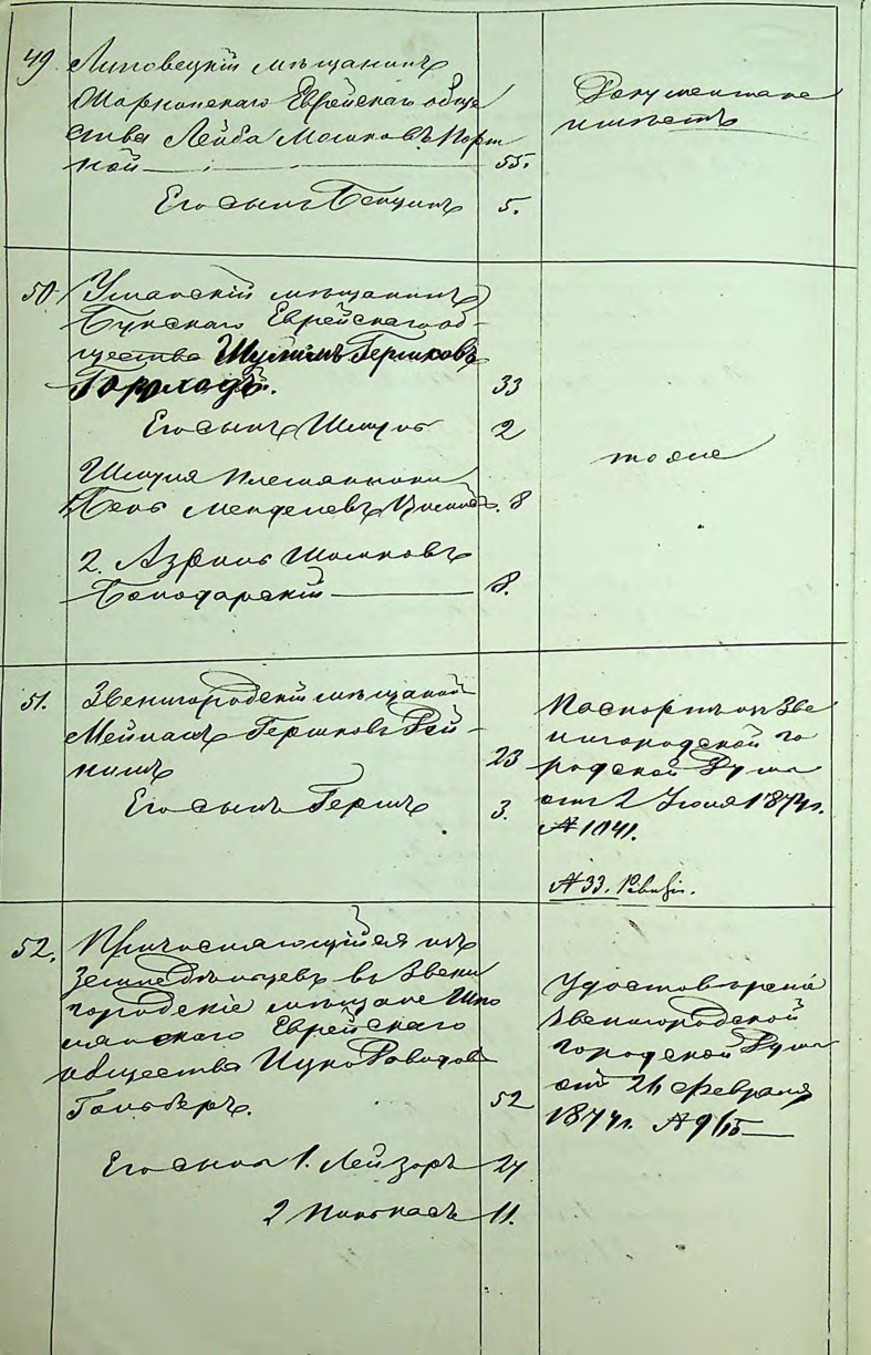 49. Липовецкій мѣщанинъ
Еврейскаго обще
ства Лейба Мошковъ Порт
ной 55.
Его сынъ 5.
Документа не
имѣетъ
50. Уманскій мѣщанинъ
Букскаго Еврейскаго об-
щества Шулимъ Гершковъ
33
Его сынъ Шмуль 2
Шмуля племянники
1. Бень Менделевъ 8
2. Азриль Мошковъ
Бондарскій 8.
тоже
51. Звенигородскій мѣщанинъ
Гершковъ Рей-
23
Его сынъ Гершъ 3.
Паспортъ изъ Зве
нигородской го
родской Думы
отъ 2 Іюня 1874 г.
№ 1041.
№ 33.
52. Причисляющійся изъ
Земледѣльцевъ въ Звени
городскіе мѣщане Шпо
лянскаго Еврейскаго
общества Ицко
Гольберъ. 52
Его сыновья 1. Лейзоръ 24
2 Пинхасъ 11.
Удостовѣреніе
Звенигородской
городской Думы
отъ 26 февраля
1874 г. №